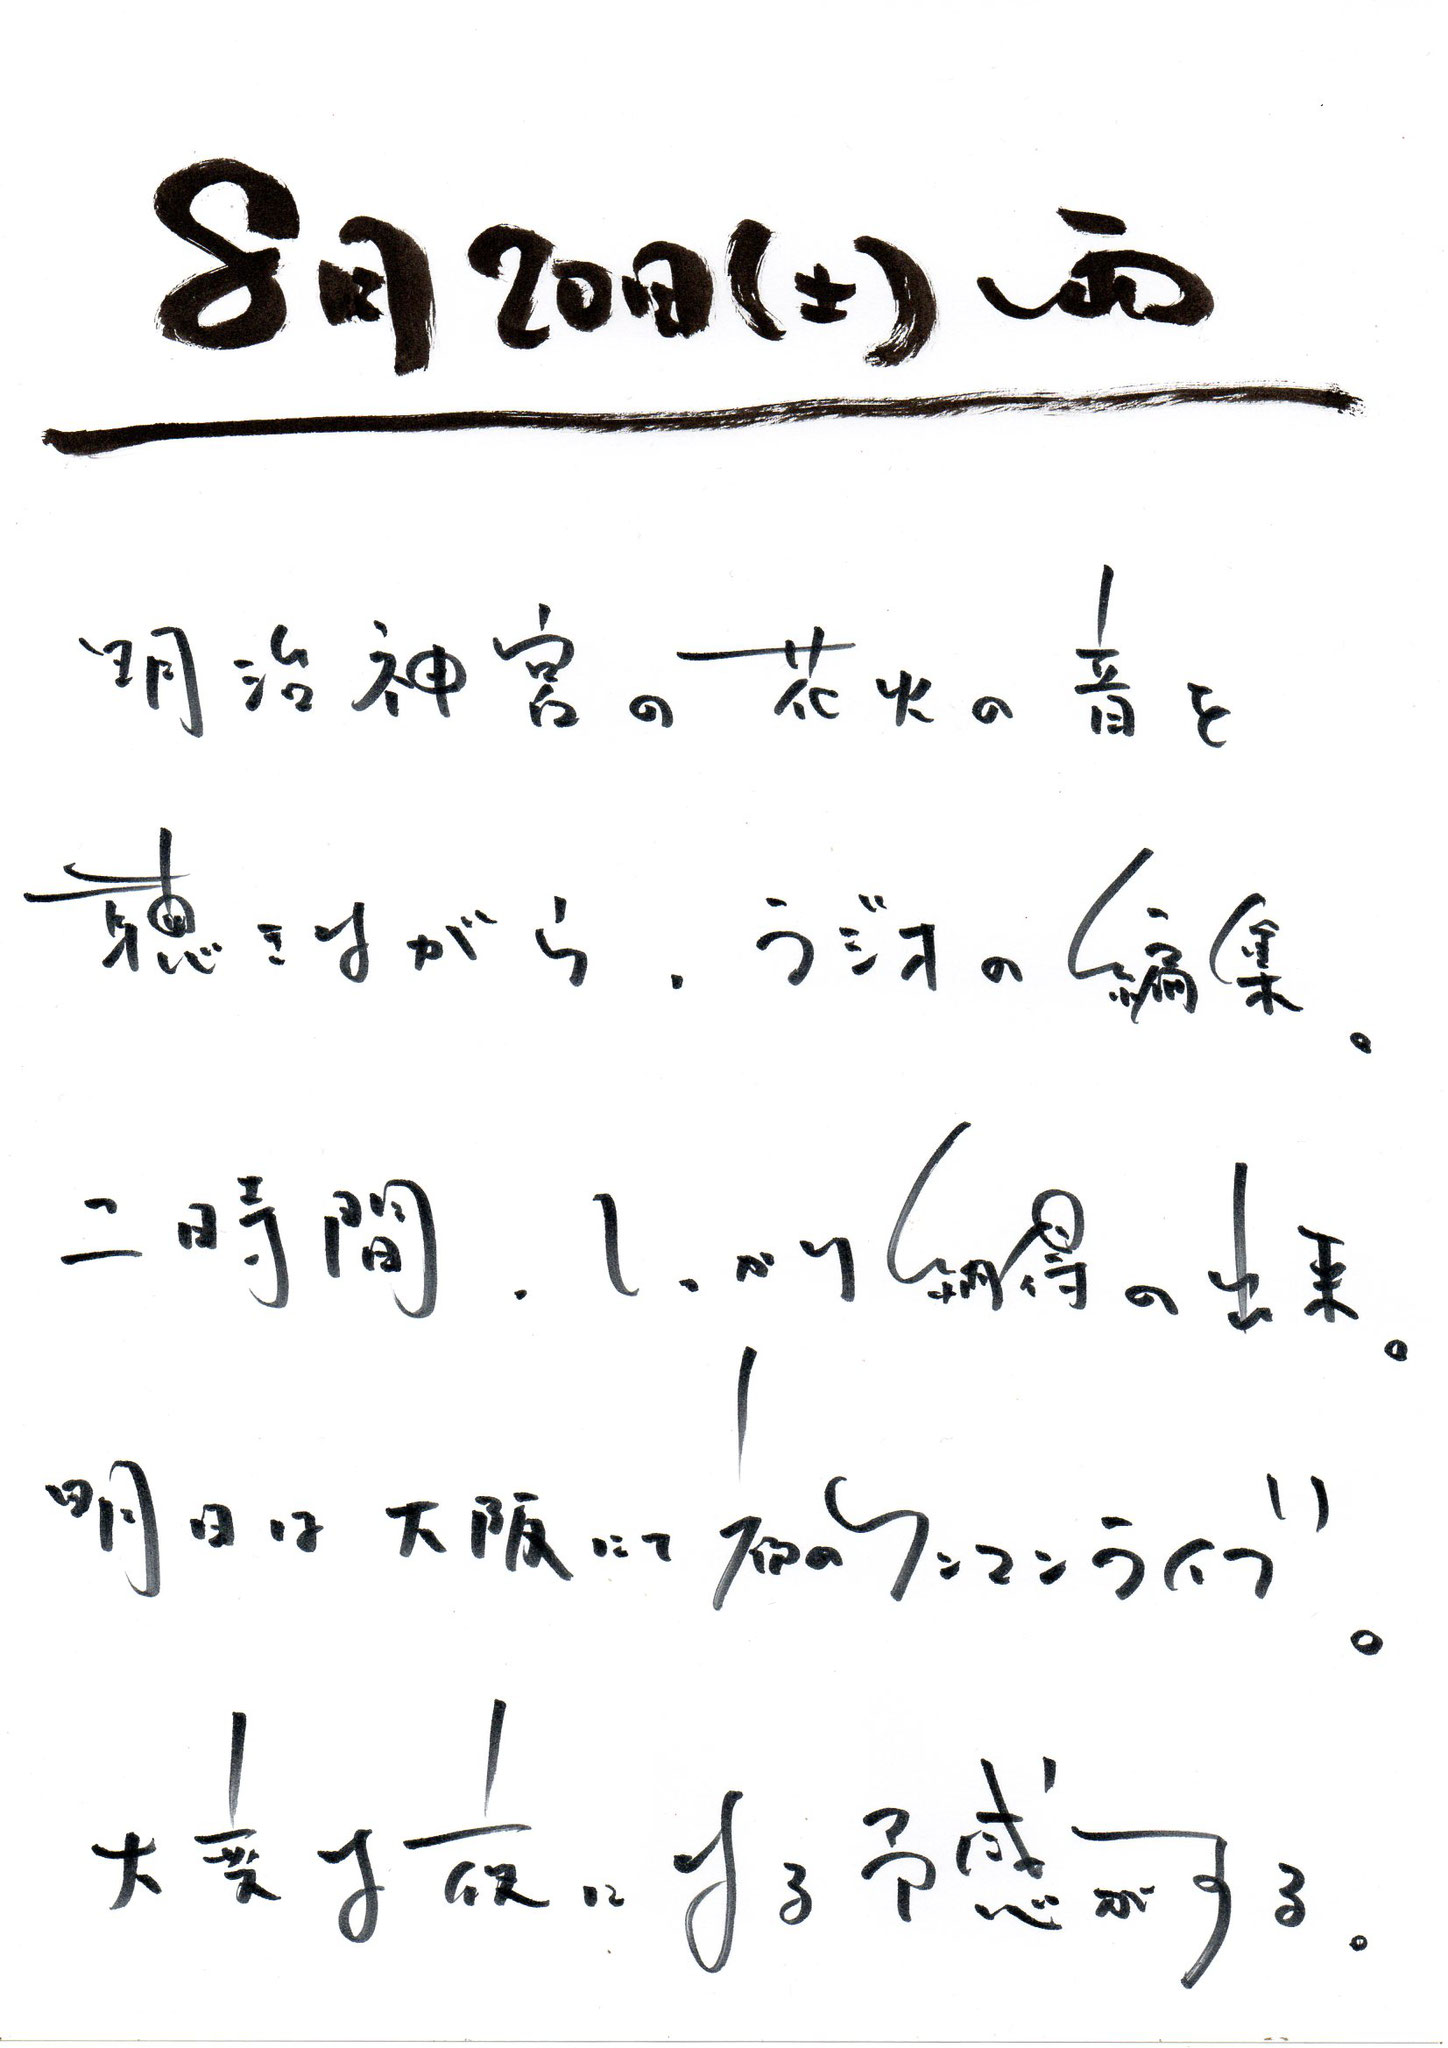 8月20日(土) 雨
明治神宮の花火の音を
聴きながら、ラジオの編集。
二時間、しっかり納得の出来。
明日は大阪にて俺のワンマンライブ。
大変な夜になる予感がする。